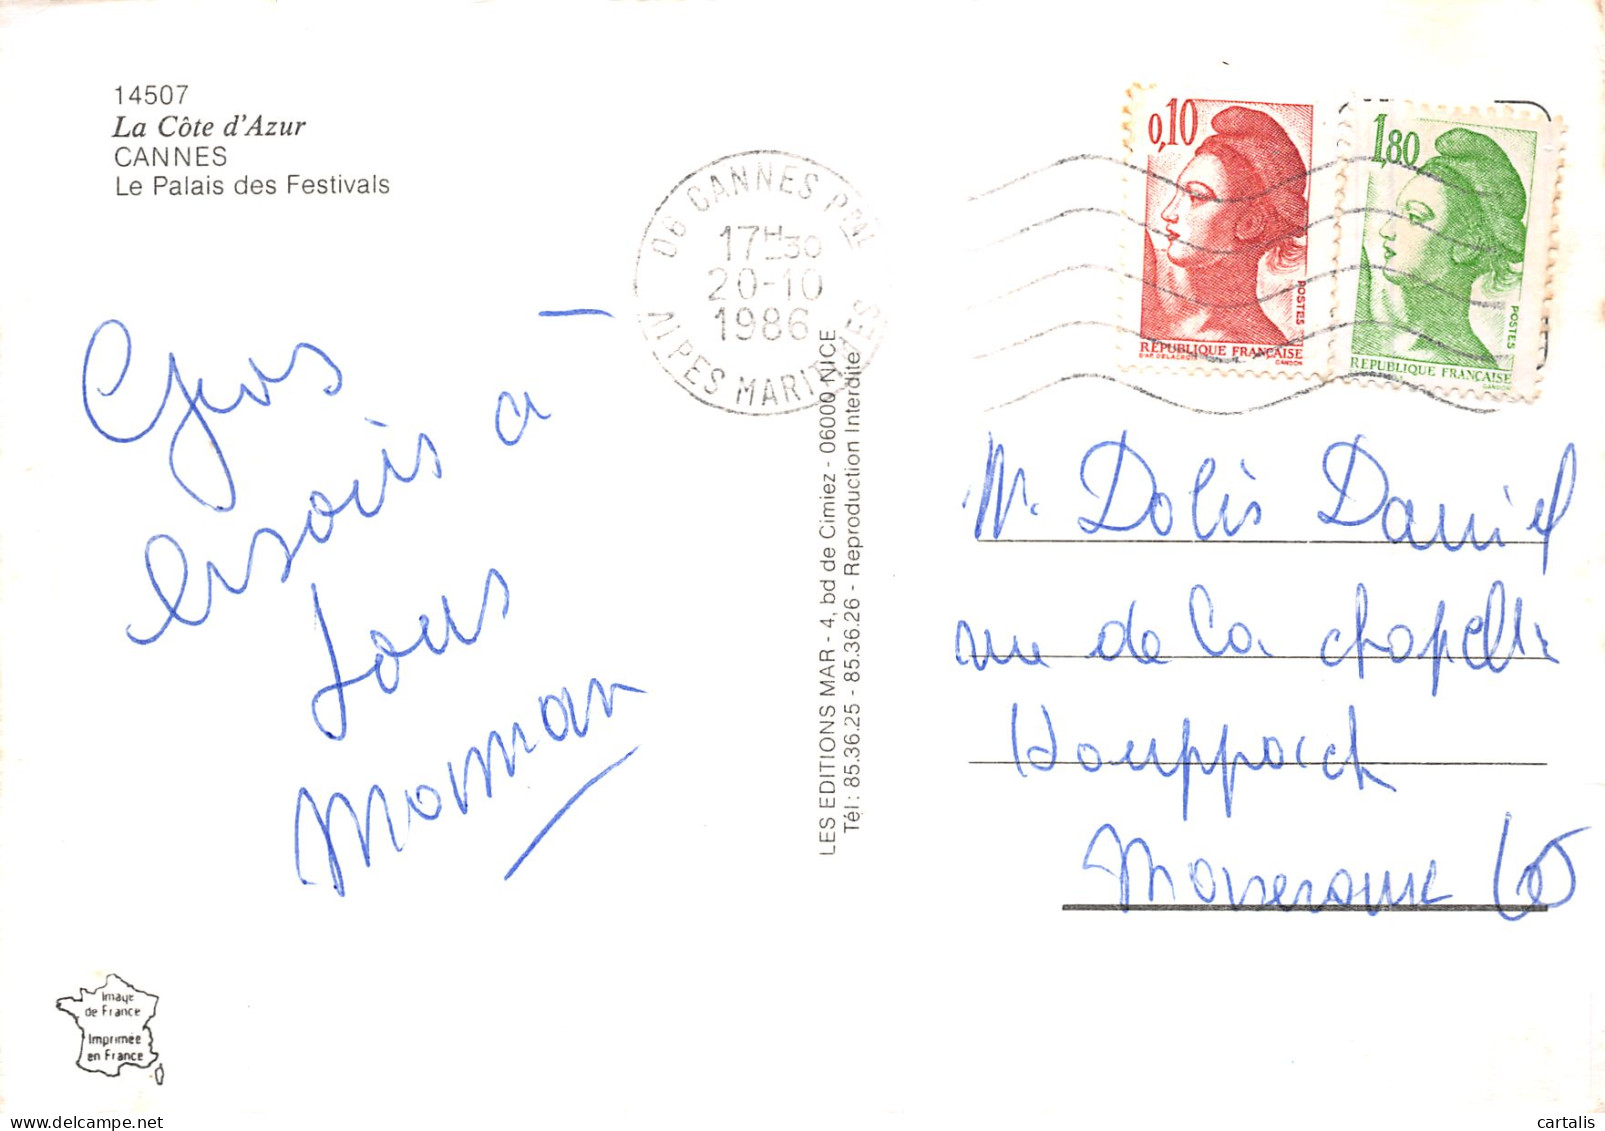 14507
La Côte d'Azur
CANNES
Le Palais des Festivals
06 CANNES PPAL
17H30
20-10
1986
ALPES MARITIMES
0,10
POSTES
RÉPUBLIQUE FRANÇAISE
D'AP. DELACROIX
GANDON
1,80
POSTES
REPUBLIQUE FRANÇAISE
GANDON
Gros
à
tous
Maman
LES EDITIONS MAR - 4, bd de Cimiez - 06000 NICE
Tél : 85.36.25 - 85.36.26 - Reproduction Interdite
Mr Dolis Daniel
rue de la chapelle
Image
de France
Imprimée
en France
cartalis